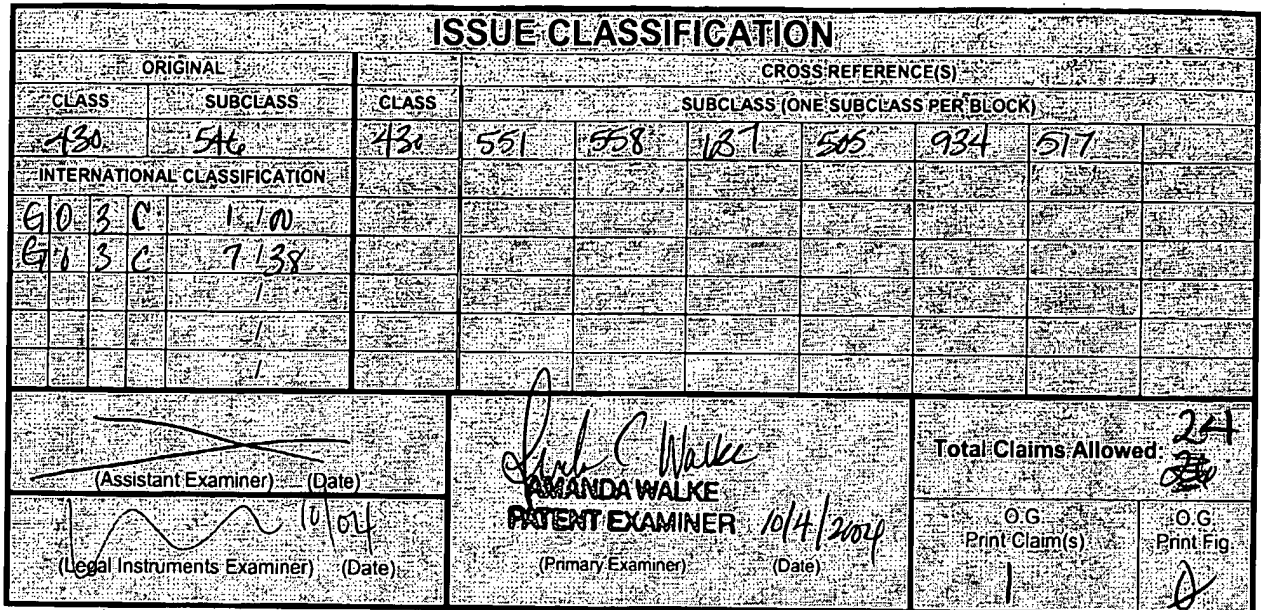 ISSUE CLASSIFICATION
ORIGINAL CROSS REFERENCE(S)
CLASS SUBCLASS CLASS SUBCLASS (ONE SUBCLASS PER BLOCK)
430 546 430 551 558 505 934 517
INTERNATIONAL CLASSIFICATION
G 0 3 C 1 / 00
G 0 3 C 7 / 38
/
/
/
(Assistant Examiner) (Date)
10/04
(Legal Instruments Examiner) (Date)
C Walke
AMANDA WALKE
PATENT EXAMINER 10/4/2004
(Primary Examiner) (Date)
Total Claims Allowed: 24
O.G. Print Claim(s)
1
O.G. Print Fig.